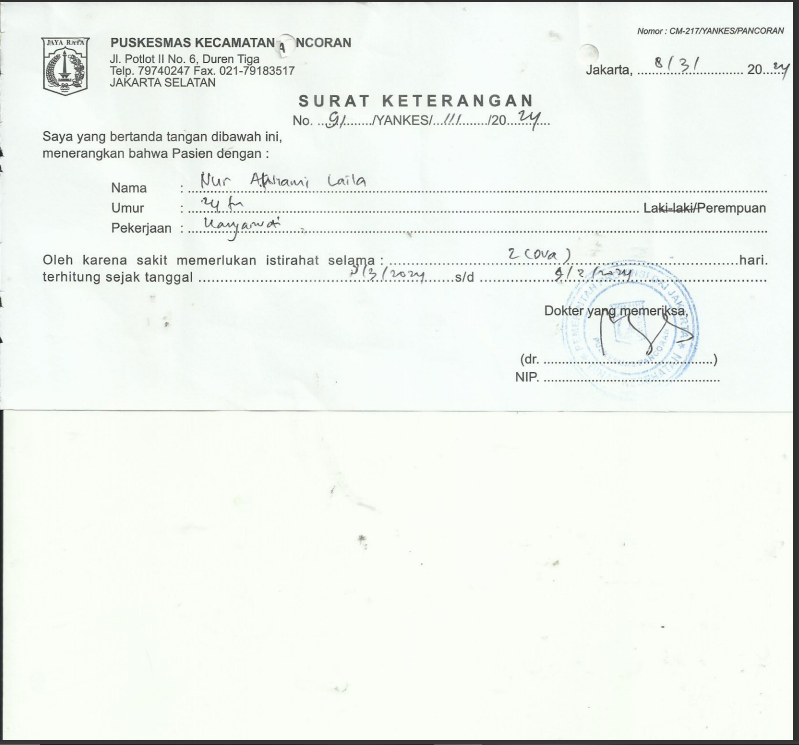 Nomor : CM-217/YANKES/PANCORAN
JAYA RAYA
PUSKESMAS KECAMATAN PANCORAN
Jl. Potlot II No. 6, Duren Tiga
Telp. 79740247 Fax. 021-79183517
JAKARTA SELATAN
Jakarta, 8/3/ 2024
SURAT KETERANGAN
No. 91/YANKES/III/2024
Saya yang bertanda tangan dibawah ini,
menerangkan bahwa Pasien dengan :
Nama : Nur Laila
Umur : 24 th Laki-laki/Perempuan
Pekerjaan : Karyawati
Oleh karena sakit memerlukan istirahat selama : 2 (dua) hari.
terhitung sejak tanggal 8/3/2024 s/d 9/2/2024
Dokter yang memeriksa,
(dr. )
NIP.